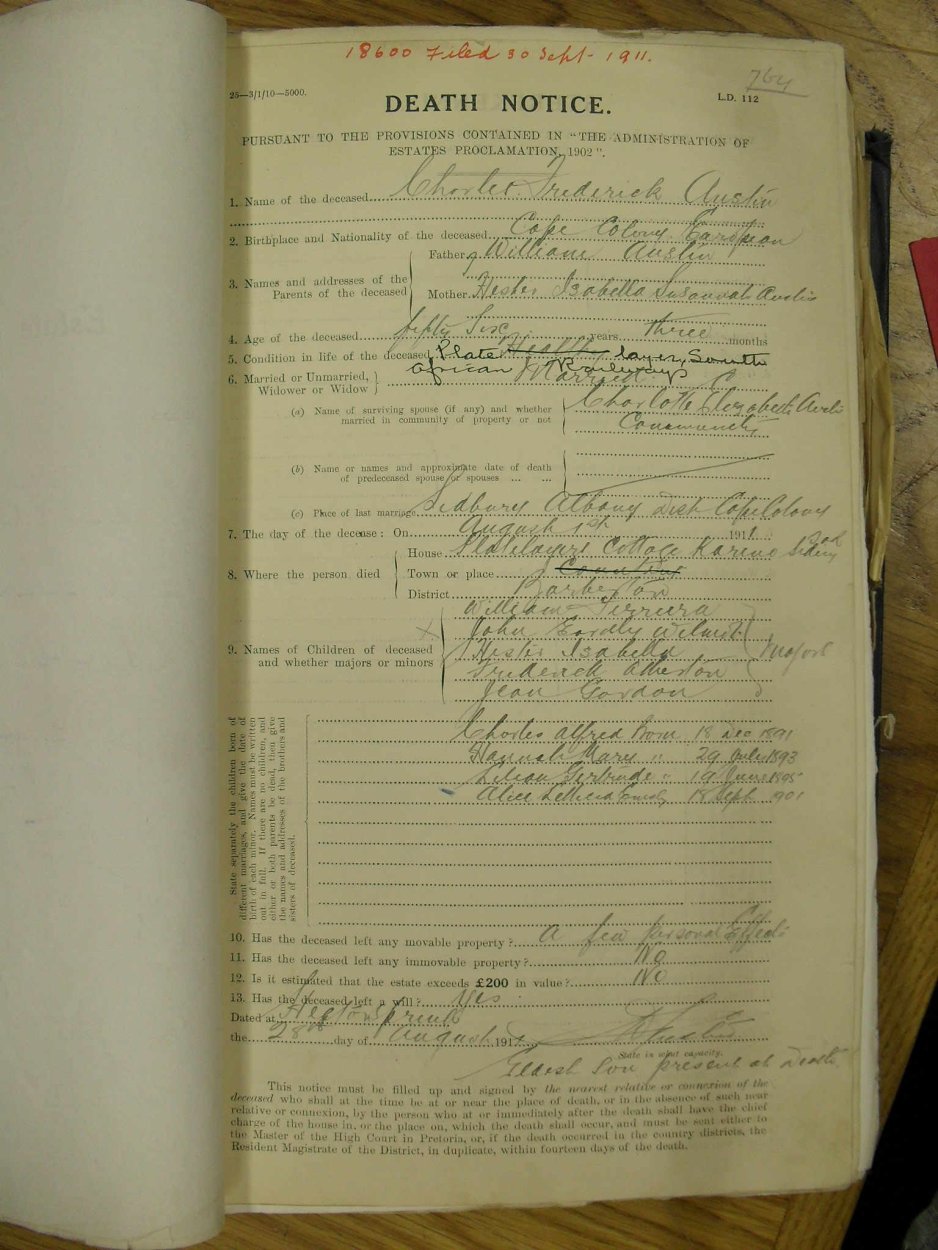 18600 Filed 30 Sept- 1911.
764
25—3/1/10—5000.
L.D. 112
DEATH NOTICE.
PURSUANT TO THE PROVISIONS CONTAINED IN "THE ADMINISTRATION OF
ESTATES PROCLAMATION, 1902".
1. Name of the deceased Charles Frederick Austin
2. Birthplace and Nationality of the deceased Cape Colony European
3. Names and addresses of the Parents of the deceased
Father William Austin
Mother Hester Isabella Susannah Austin
4. Age of the deceased fifty Six years three months
5. Condition in life of the deceased Plate layer South
African Railways
6. Married or Unmarried, Widower or Widow Married
(a) Name of surviving spouse (if any) and whether married in community of property or not Charlotte Elizabeth Austin
Community
(b) Name or names and approximate date of death
of predeceased spouse or spouses ... ...
(c) Place of last marriage Sidbury Albany Dist Cape Colony
7. The day of the decease: On August 1st 1911
8. Where the person died
House Platelayers Cottage Karino Siding
Town or place
District Barberton
9. Names of Children of deceased
and whether majors or minors
William
John Eardly Wilmot
Hester Isabella
Frederick
Jean Gordon
Majors
State separately the children born of
different marriages, and give the date of
birth of each minor. Names must be written
out in full. If there are no children, and
either or both parents be dead, then give
the names and addresses of the brothers and
sisters of deceased.
Charles Alfred Born 18 Dec 1891
Hannah Mary " 29 July 1893
Lilian Gertrude " 19 June 1895
Alice 18 Sept 1901
10. Has the deceased left any movable property? A few personal Effects
11. Has the deceased left any immovable property? No
12. Is it estimated that the estate exceeds £200 in value? No
13. Has the deceased left a will? Yes
Dated at Hector Spruit
the 28th day of August 191
State in what capacity.
Eldest Son present at Death
This notice must be filled up and signed by the nearest relative or connexion of the
deceased who shall at the time be at or near the place of death, or in the absence of such near
relative or connexion, by the person who at or immediately after the death shall have the chief
charge of the house in, or the place on, which the death shall occur, and must be sent either to
the Master of the High Court in Pretoria, or, if the death occurred in the country districts, the
Resident Magistrate of the District, in duplicate, within fourteen days of the death.